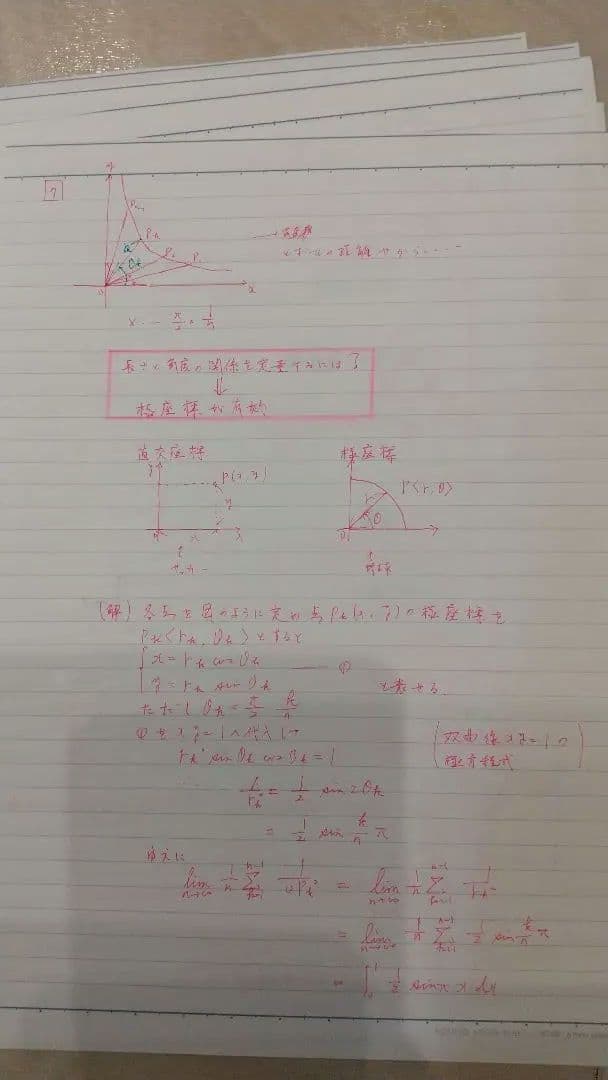 7
y
Pn-1
Pk
P2
P1
θk
O
x
長さと角度の関係を定量するには?
⇓
極座標が有効
直交座標
極座標
P(x, y)
P<r, θ>
y
x
r
θ
(解) 各点を図のように定め 点Pk(x, y)の極座標を
Pk<rk, θk>とすると
x = rk cos θk
y = rk sin θk ― ①
と表せる.
ただし θk = π/2・k/n
①を xy = 1 へ代入して
rk² sin θk cos θk = 1
(双曲線 xy = 1 の
極方程式)
1/rk² = 1/2 sin 2θk
= 1/2 sin k/n π
ゆえに
lim n→∞ 1/n Σ k=1 n-1 1/OPk² = lim n→∞ 1/n Σ k=1 n-1 1/rk²
= lim n→∞ 1/n Σ k=1 n-1 1/2 sin k/n π
= ∫0 1 1/2 sin π x dx